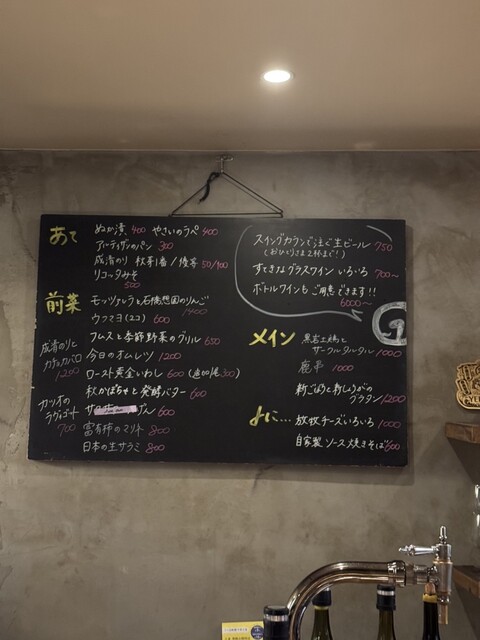 あて
ぬか漬 400 やさいのラペ 400
アルティザンのパン 300
成清のり 秋芽1番/後等 50/400
リコッタみそ
500
前菜
モッツァレラと石橋想園のりんご
1400
ウフマヨ(2コ) 600
フムスと季節野菜のグリル 650
今日のオムレツ 1200
ロースト黄金いわし 600 (追加1尾300)
秋かぼちゃと発酵バター 600
600
富有柿のマリネ 800
日本の生サラミ 800
成清のりと
カチョカバロ
1200
カツオの
ラヴィゴット
700
スイングカランで注ぐ生ビール 750
(おひとりさま2杯まで!)
すてきなグラスワイン いろいろ 700~
ボトルワインも ご用意できます!!
6000~
メイン
サークルタルタル 1000
鹿串 1000
新ごぼうと新しょうがの
グラタン 1200
よこ...
放牧チーズいろいろ 1000
自家製ソース焼きそば 600